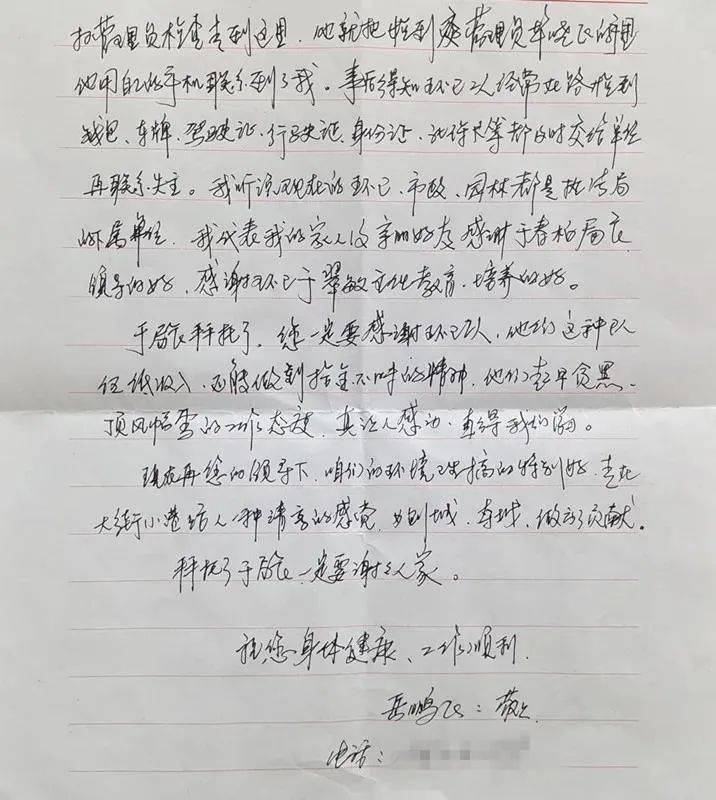 扣管理员检查走到这里，他就把捡到交管理员毕晓飞的手里
他用自己的手机联系到了我。事后得知环卫工人经常在路捡到
钱包、车牌、驾驶证、行驶证、身份证、社保卡等都及时交给单位
再联系失主。我听说现在的环卫、市政、园林都是执法局
下属单位，我代表我的家人及亲朋好友感谢于春柏局长
领导的好，感谢环卫于翠敏主任教育、培养的好。
于局长拜托了，您一定要感谢环卫工人，他们这种
低收入，还能做到拾金不昧的精神，他们起早贪黑、
顶风冒雪的工作态度，真让人感动，真得我们学习。
现在再您的领导下，咱们的环境卫生搞的特别好，走在
大街小巷给人一种清亮的感觉，为创城、夺城，做了贡献。
拜托了于局长一定要谢谢人家。
祝您身体健康、工作顺利
岳鹏飞：敬上
电话：